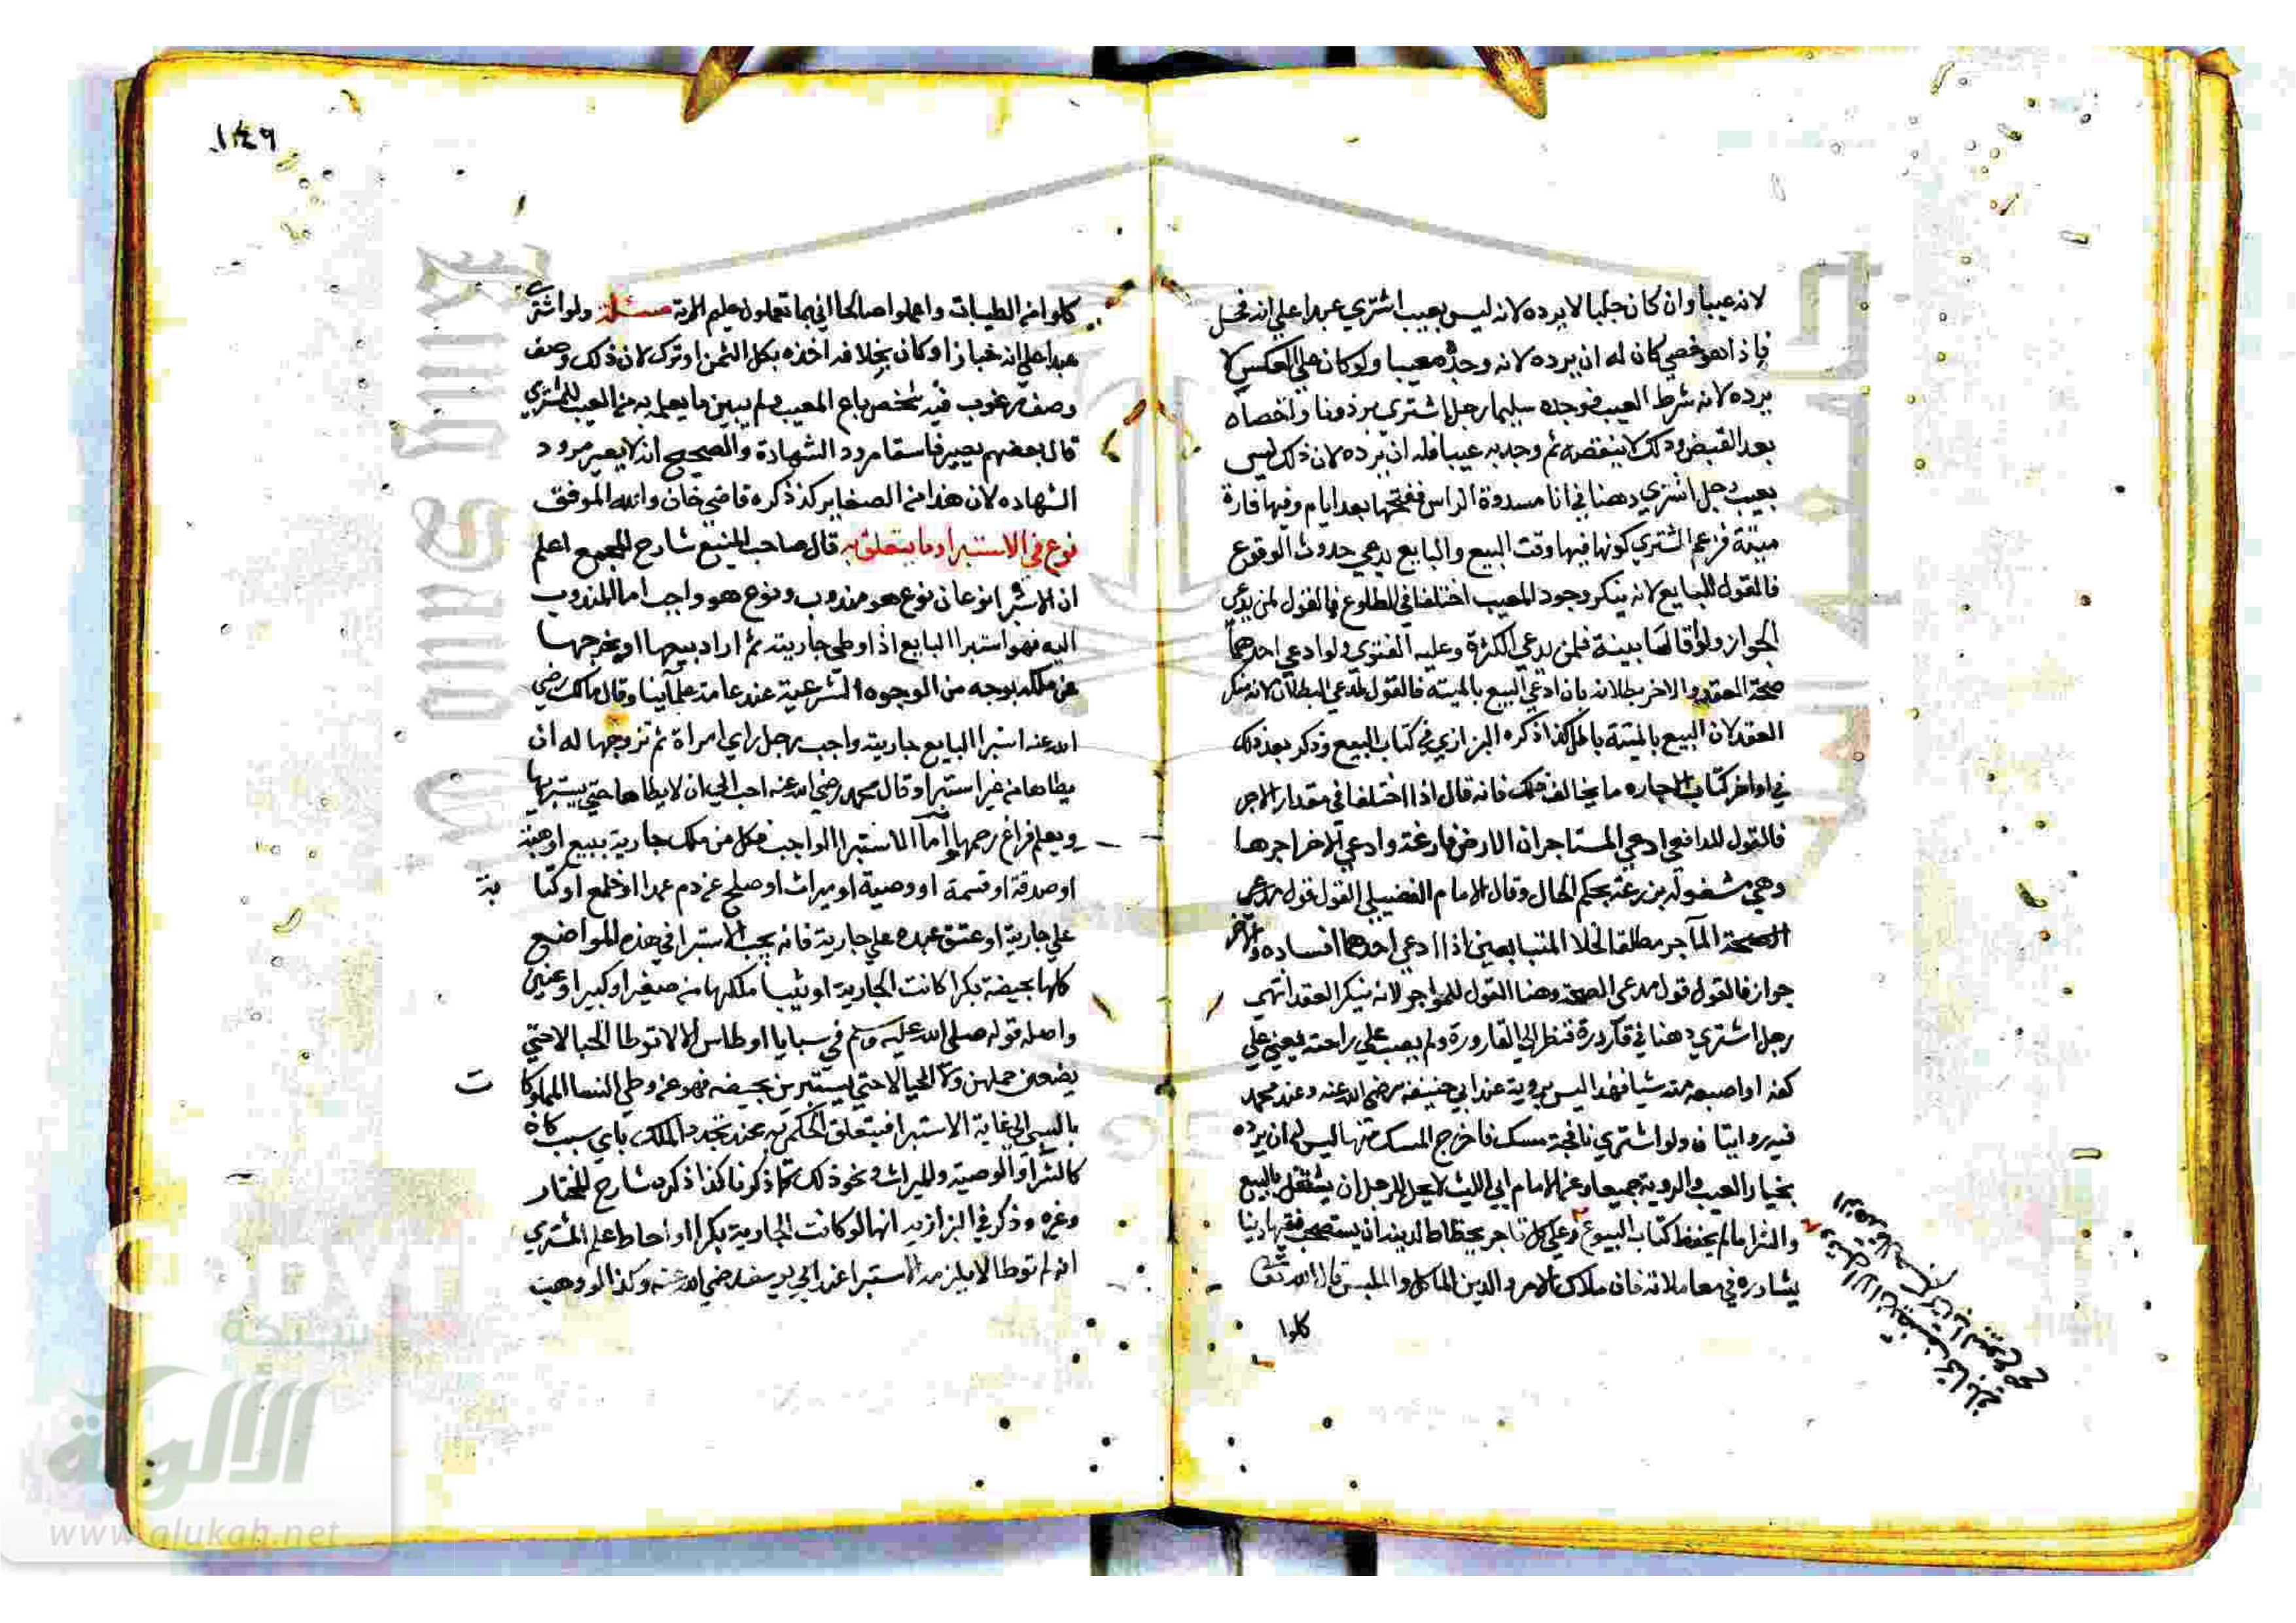 لانه عيبا وان كان جلبا لا يرده لانه ليس بعيب اشتري عبدا علي انه فحل
فاذا هو خصي كان له ان يرده لانه وجده معيبا ولو كان علي العكس لا
يرده لانه شرط العيب فوجده سليما رجل اشتري برذونا واخصاه
بعد القبض وذلك لا ينقصه ثم وجد به عيبا فله ان يرده لان ذلك ليس
بعيب رجل اشتري دهنا في انا مسدودة الراس ففتحها بعد ايام وفيها فارة
ميتة فزعم المشتري كونها فيها وقت البيع والبايع يدعي حدوث الوقوع
فالقول للبايع لانه ينكر وجود العيب اختلفا في الطلوع فالقول لمن يدعي
الجواز ولو اقاما بينة فلمن يدعي الكثرة وعليه الفتوي ولو ادعي احدهما
صحة العقد والاخر بطلانه بان ادعي البيع بالميتة فالقول لمدعي البطلان لانه منكر
العقد لان البيع بالميتة باطل كذا ذكره البزازي في كتاب البيع وذكر بعد ذلك
في اواخر كتاب الاجاره ما يخالف ذلك فانه قال اذا اختلفا في مقدار الاجر
فالقول للدافع ادعي المستاجر ان الارض فارغة وادعي الاخر اجرها
وهي مشغوله بزرعه يحكم الحال وقال الامام الفضيلي القول قول مدعي
الصحة الماجر مطلقا بخلاف المتبايعين اذا ادعي احدهما افساده والاخر
جواز فالقول قول مدعي الصحة وهنا القول للمواجر لانه ينكر العقد انتهي
رجل اشتري دهنا في قارورة فنظر الي القارورة ولم يصب علي راحته يعني علي
كفه او اصبعه منه شيا فهذا ليس بروية عند ابي حنيفه رضي الله عنه وعند محمد
فيه روايتان ولو اشتري نافجة مسك فاخرج المسك منها ليس له ان يرده
بخيار العيب والروية جميعا وعن الامام ابي الليث لا يحل للرجل ان يشتغل بالبيع
والشرا ما لم يحفظ كتاب البيوع وعلي كل تاجر يحتاط لدينه ان يستصحب فقيها دينا
يشاوره في معاملاته فان ملاك الامر والدين الماكل والملبس قال الله تعالي
كلوا
١٤٩
كلوا من الطيبات واعملوا صالحا اني بما تعملون عليم الاية مسئلة ولو اشتري
عبدا علي انه خباز او كان بخلافه اخذه بكل الثمن او ترك لان ذلك وصف
وصف مرغوب فيه شخص باع المعيب ولم يبين ما يعلم به من العيب للمشتري
قال بعضهم يصير فاسقا مردود الشهادة والصحيح انه لا يصير مردود
الشهاده لان هذا من الصغاير كذا ذكره قاضي خان والله الموفق
نوع في الاستبرا وما يتعلق به قال صاحب المنبع شارح المجمع اعلم
ان الاستبرا نوعان نوع هو مندوب ونوع هو واجب اما المندوب
اليه فهو استبرا البايع اذا وطي جاريته ثم اراد بيعها او يخرجها
عن ملكه بوجه من الوجوه الشرعية عند عامة علماينا وقال مالك رضي
الله عنه استبرا البايع جاريته واجب رجل راي امراة ثم تزوجها له ان
يطاها من غير استبرا وقال محمد رضي الله عنه احب الي ان لا يطاها حتي يستبريها
ويعلم فراغ رحمها واما الاستبرا الواجب فكل من ملك جارية ببيع او هبة
او صدقة او قسمة او وصية او ميراث او صلح عن دم عمد او خلع او كتا بة
علي جارية او عتق عبده علي جارية فانه يجب الاستبرا في هذه المواضع
كلها بحيضة بكرا كانت الجارية او ثيبا ملكها من صغير او كبير او عنين
واصله قوله صلي الله عليه وسلم في سبايا اوطاس الا لا توطا الحبالا حتي
يضعن حملهن ولا الحيالا حتي يستبرين بحيضه فهو عن وطي النسا المملوكا ت
بالسبي الي غاية الاستبرا فيتعلق الحكم به عند تجدد الملك باي سبب كان
كالشرا والوصية والميراث ونحو ذلك مما ذكرنا كذا ذكره شارح المختار
وغيره وذكر في البزازيه انها لو كانت الجارية بكرا او احاط علم المشتري
انه لم توطا لا يلزمه الاستبرا عند ابي يوسف رضي الله عنه وكذا لو وهبت